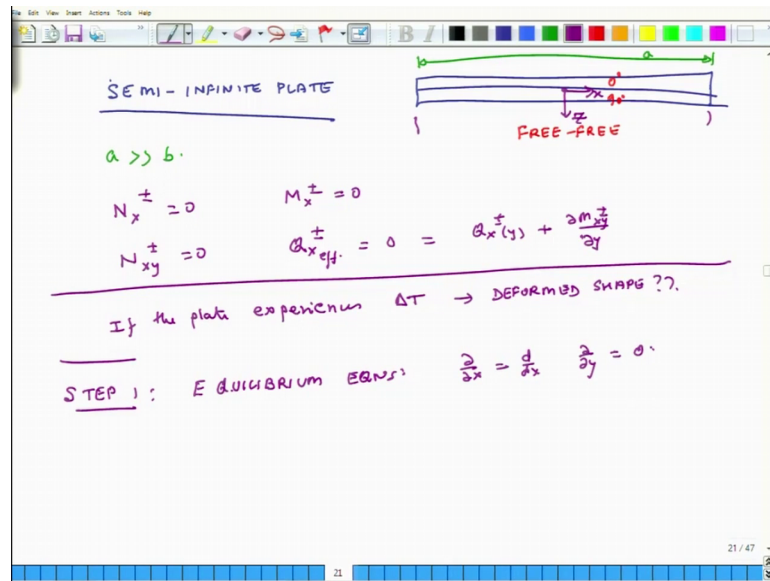 File Edit View Insert Actions Tools Help
a
SEMI-INFINITE PLATE
0°
x
90°
z
FREE-FREE
a >> b.
Nx± = 0 Mx± = 0
Nxy± = 0 Qx±eff. = 0 = Qx±(y) + ∂Mxy±/∂y
If the plate experiences ΔT → DEFORMED SHAPE ??.
STEP 1: EQUILIBRIUM EQNS: ∂/∂x = d/dx ∂/∂y = 0.
21 / 47
21